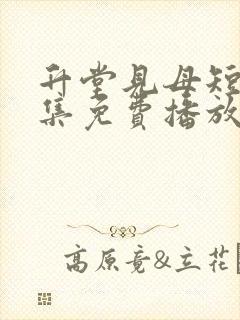 升堂見母短
集免費播放
高原竟&立花